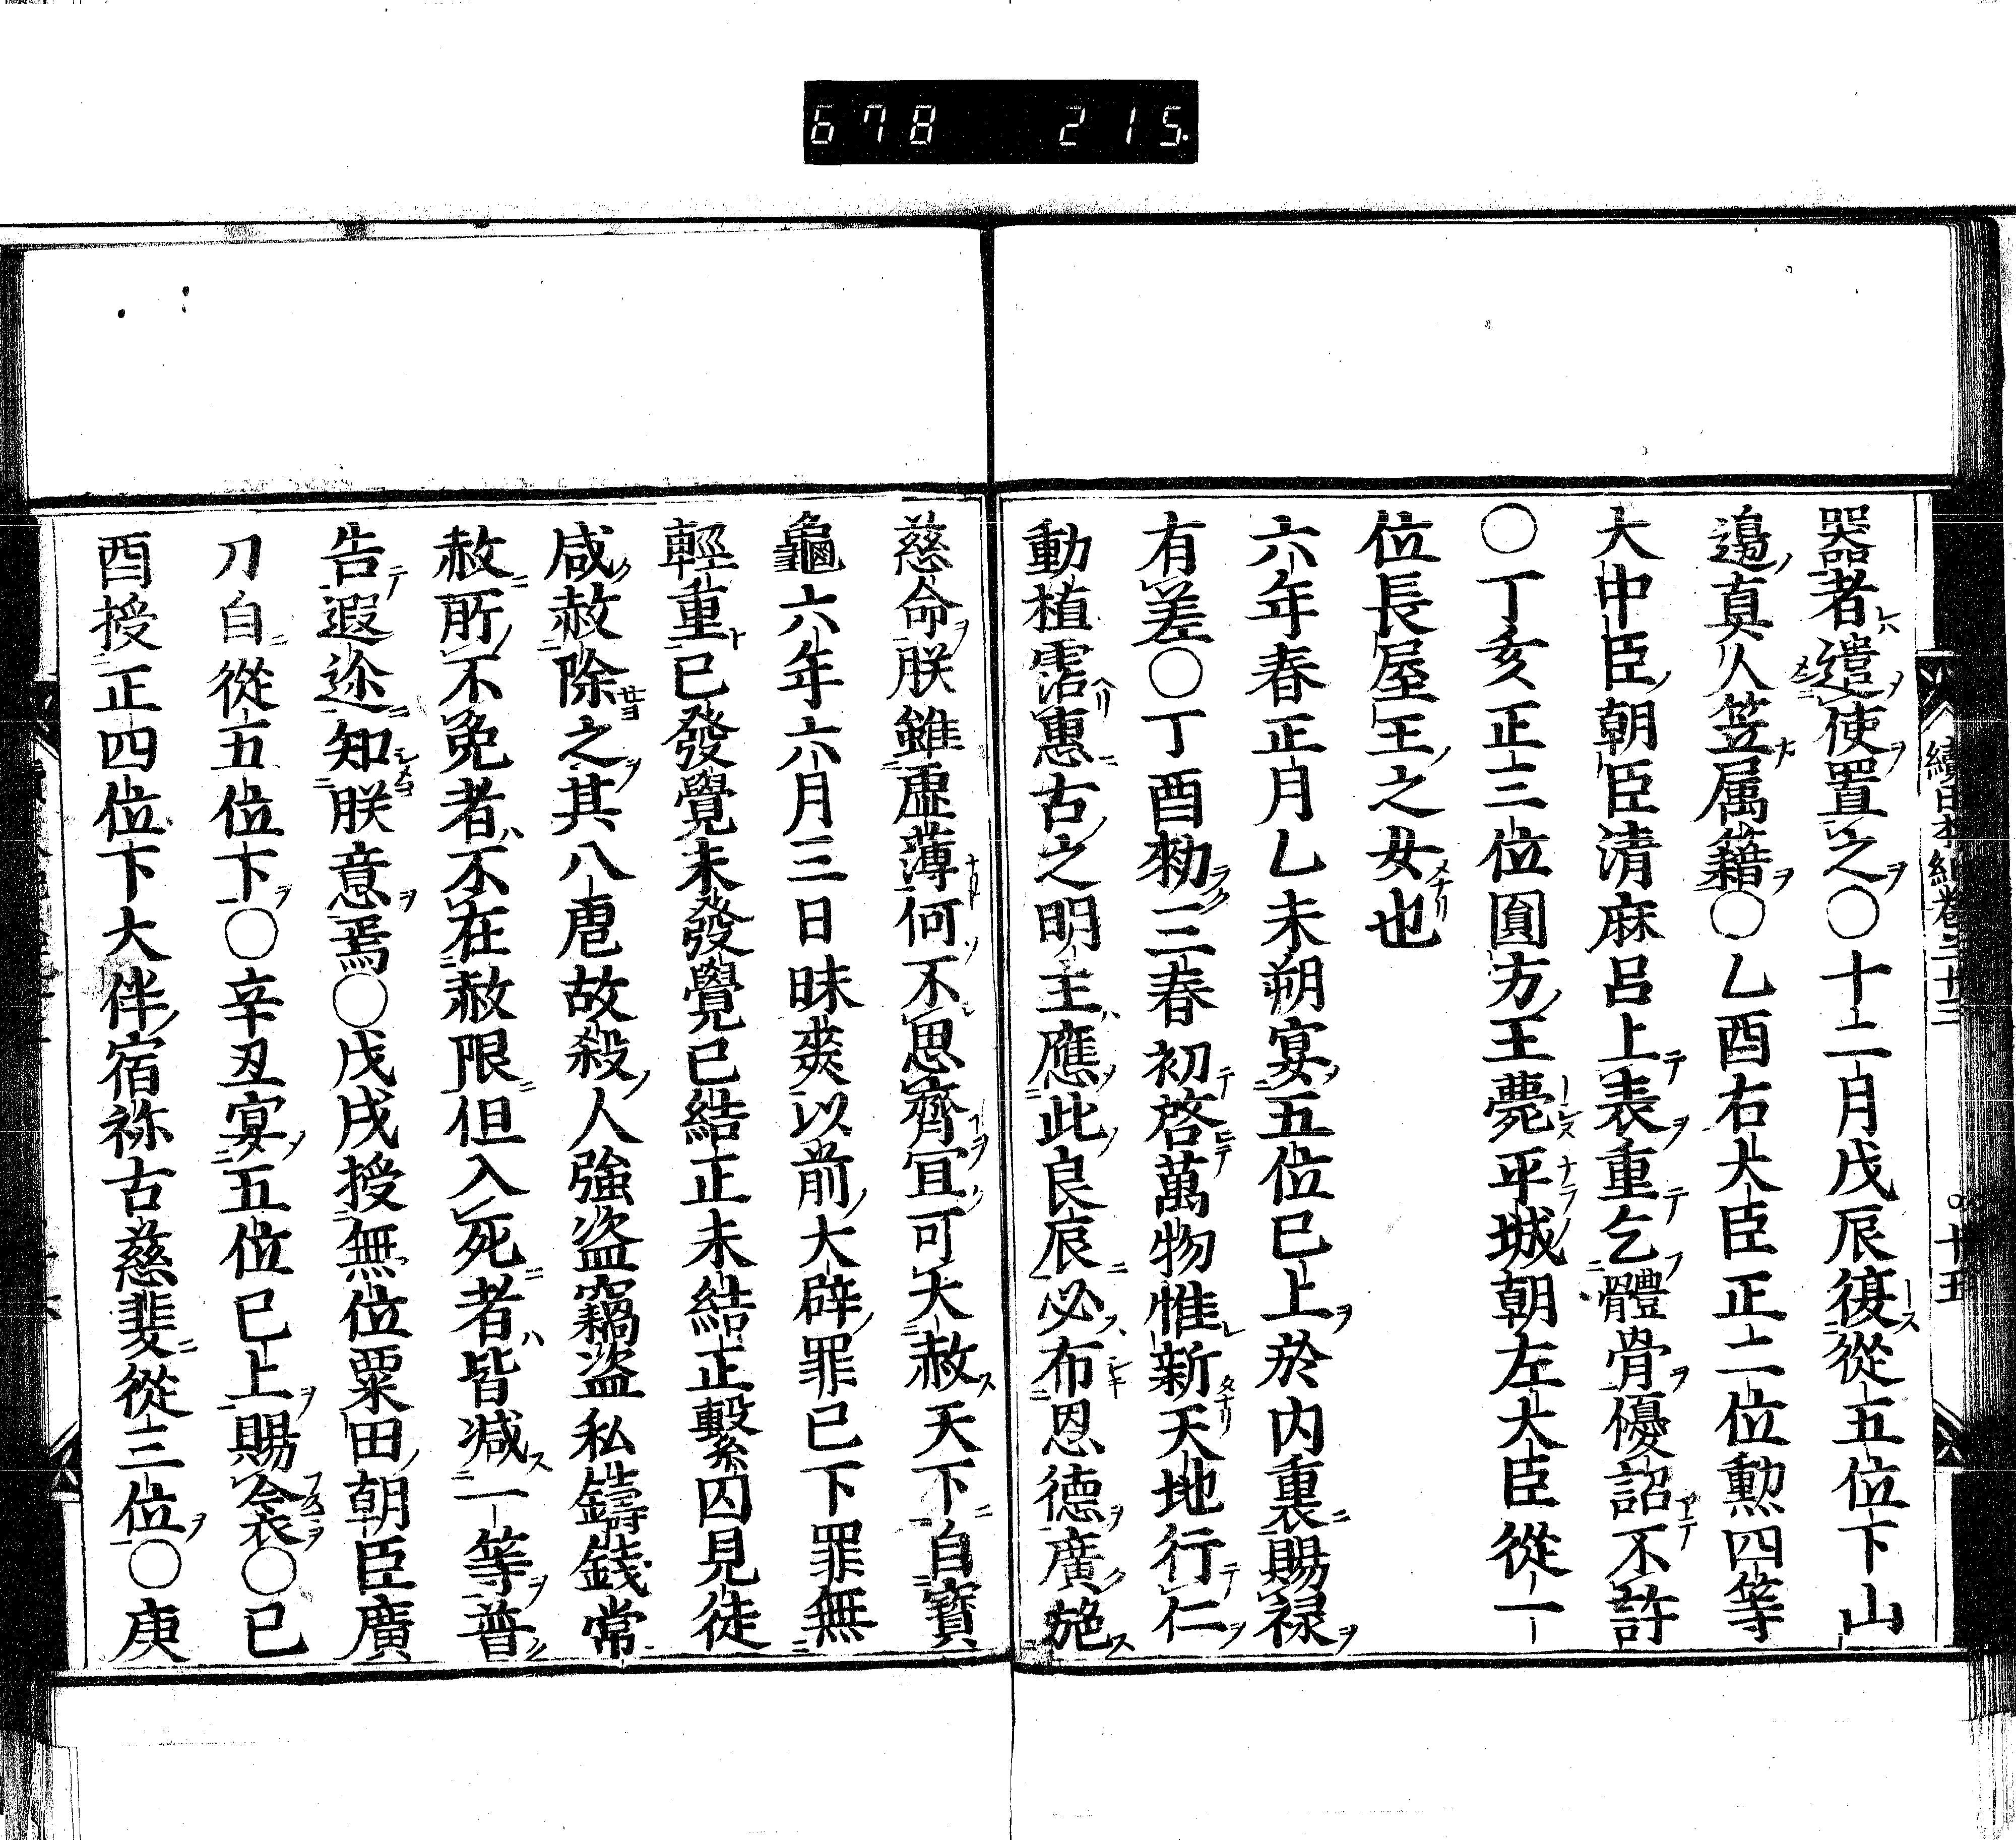 678 215
器者遣使置之○十二月戊辰復從五位下山
邊真人笠属籍○乙酉右大臣正二位勲四等
大中臣朝臣清麻呂上表重乞體骨優詔不許
○丁亥正三位圓方王薨平城朝左大臣從一
位長屋王之女也
六年春正月乙未朔宴五位已上於内裏賜禄
有差○丁酉勑三春初啓萬物惟新天地行仁
動植霑惠古之明主應此良辰必布恩德廣施
慈命朕雖虛薄何不思齊宜可大赦天下自寶
龜六年六月三日昧爽以前大辟罪已下罪無
輕重已發覺未發覺已結正未結正繫囚見徒
咸赦除之其八虐故殺人強盗竊盗私鑄錢常
赦所不免者不在赦限但入死者皆減一等普
告遐迩知朕意焉○戊戌授無位粟田朝臣廣
刀自從五位下○辛丑宴五位已上賜衾○已
酉授正四位下大伴宿祢古慈斐從三位○庚